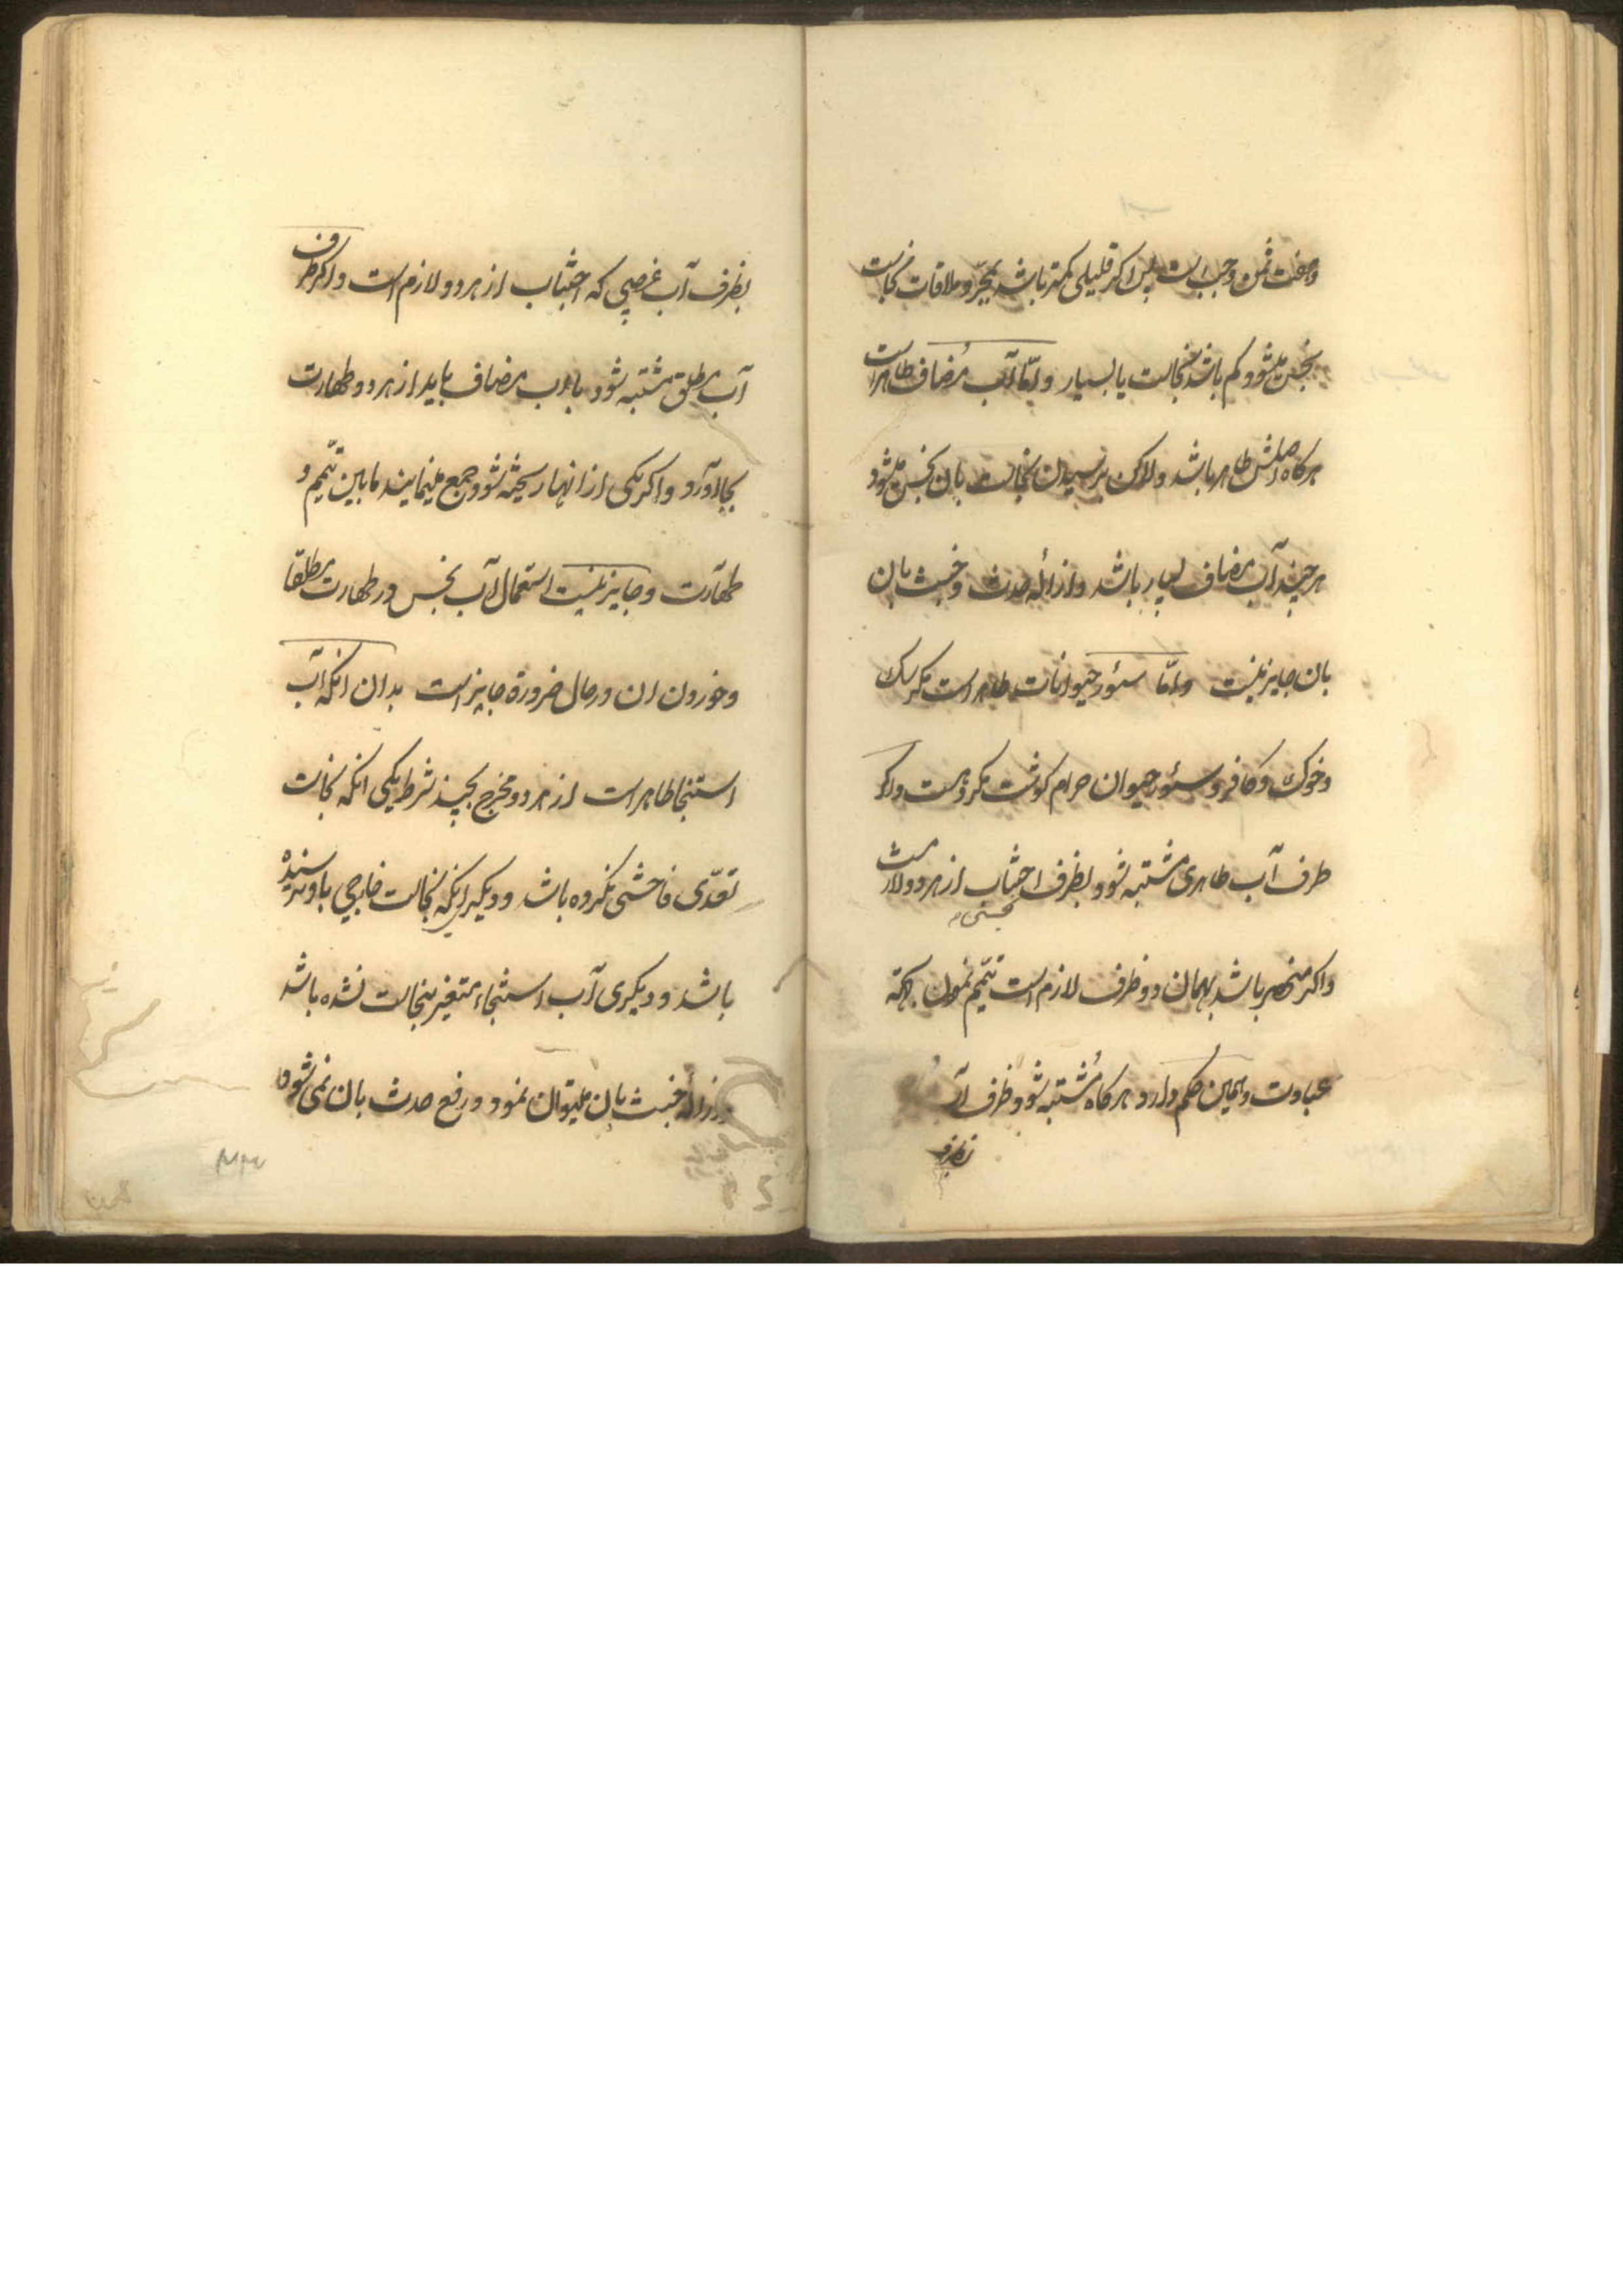 وهفت ثمن وجب است پس اکر قلیلی کمتر باشد بمجرد ملاقات نجاست
نجس میشود کم باشد نجاست یا بسیار و امّا آب مُضاف طاهر است
هرکاه اصلش طاهر باشد ولاکن برسیدن نجاست بان نجس میشود
هرچند آب مضاف بسیار باشد و ازالهٔ حدث و خبث بان
بان جایز نیست و امّا سئور حیوانات طاهر است مکر سک
و خوک و کافر و سئور حیوان حرام کوشت مکروه است و اکر
ظرف آب طاهری مشتبه شود بظرف نجسی اجتناب از هر دو لازم است
و اکر منحصر باشد بهمان دو ظرف لازم است تیمّم نمودن بجهة
عبادت و همین حکم دارد هرکاه مُشتبه شود ظرف آب
بظرف
بظرف آب غصبی که اجتناب از هر دو لازم است و اکر ظرف
آب مطلق مشتبه شود باآب مضاف باید از هر دو طهارت
بجا آورد و اکر یکی از انها ریخته شود جمع مینمایند مابین تیمّم و
طهارت و جایز نیست استعمال آب نجس در طهارت مطلقا
و خوردن ان در حال ضرورة جایز است بدان انکه آب
استنجا طاهر است از هر دو مخرج بچند شرط یکی انکه نجاست
تعدّی فاحشی نکرده باشد و دیکر انکه نجاست خارجی باو نرسیده
باشد و دیکری آب استنجاء متغیر بنجاست نشده باشد
و ازالهٔ خبث بان میتوان نمود و رفع حدث بان نمی شود